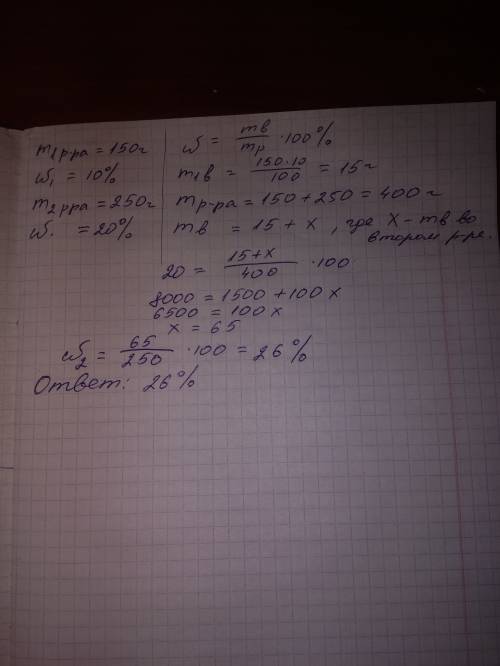 m₁ р-ра = 150 г
ω₁ = 10%
m₂ р-ра = 250 г
ω. = 20%
ω = mв/mр · 100%
m₁в = 150·10/100 = 15 г
mр-ра = 150 + 250 = 400 г
mв = 15 + x , где X - mв во
втором р-ре.
20 = 15+x/400 · 100
8000 = 1500 + 100 x
6500 = 100 x
x = 65
ω₂ = 65/250 · 100 = 26%
Ответ: 26%